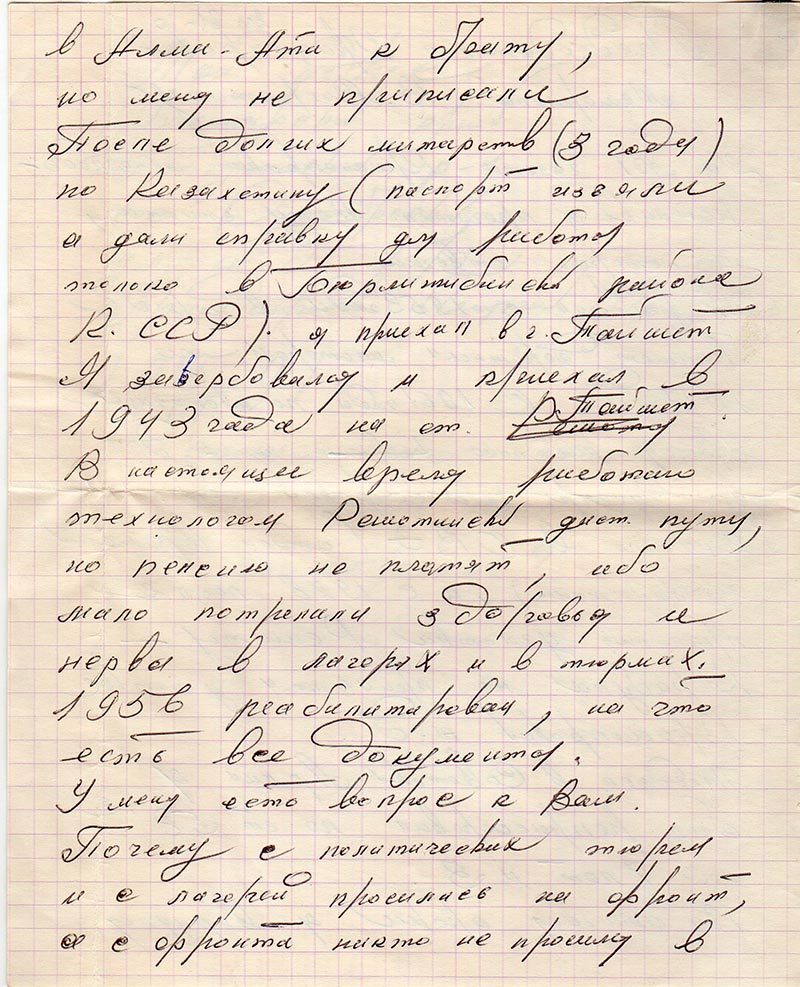 в Алма-Ата к брату,
но меня не приписали
После долгих митарств (3 года)
по Казахстану (паспорт изъяли
а дали справку для работы
только в района
К. ССР). я приехал в г. Тайшет
Я завербовался и приехал в
1943 года на ст. Тайшет.
В настоящее время работаю
технологом Решотинской дист. пути,
но пенсию не платят, ибо
мало потрепали здоровья и
нерва в лагерях и в тюрмах.
1956 реабилитирован, на что
есть все документы.
У меня есть вопрос к Вам.
Почему с политических тюрем
и с лагерей просились на фронт,
а с фронта никто не просился в